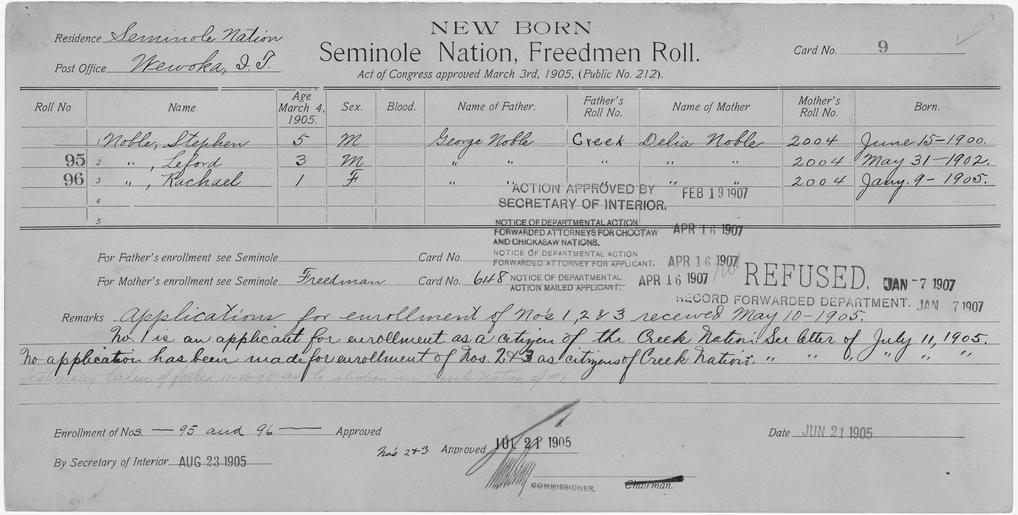 NEW BORN
Seminole Nation, Freedmen Roll.
Act of Congress approved March 3rd, 1905, (Public No. 212).
Residence Seminole Nation
Post Office Wewoka, I. T.
Card No. 9
Roll No Name Age March 4, 1905. Sex. Blood. Name of Father. Father's Roll No. Name of Mother Mother's Roll No. Born.
1 Noble, Stephen 5 M George Noble Creek Delia Noble 2004 June 15-1900.
95 2 " , Leford 3 M " " " " 2004 May 31-1902.
96 3 " , Rachael 1 F " " " " 2004 Jany. 9-1905.
4
5
ACTION APPROVED BY SECRETARY OF INTERIOR. FEB 19 1907
NOTICE OF DEPARTMENTAL ACTION
FORWARDED ATTORNEYS FOR CHOCTAW
AND CHICKASAW NATIONS. APR 16 1907
NOTICE OF DEPARTMENTAL ACTION
FORWARDED ATTORNEY FOR APPLICANT. APR 16 1907
NOTICE OF DEPARTMENTAL
ACTION MAILED APPLICANT. APR 16 1907
For Father's enrollment see Seminole Card No.
For Mother's enrollment see Seminole Freedman Card No. 648
No 1 REFUSED. JAN -7 1907
RECORD FORWARDED DEPARTMENT. JAN 7 1907
Remarks Applications for enrollment of Nos 1, 2 & 3 received May 10-1905.
No 1 is an applicant for enrollment as a citizen of the Creek Nation. See letter of July 11, 1905.
No application has been made for enrollment of Nos. 2 & 3 as citizens of Creek Nation. " " " " " "
Testimony taken of father
Enrollment of Nos. — 95 and 96 — Approved
By Secretary of Interior AUG 23 1905
No's 2 & 3 Approved JUL 21 1905
COMMISSIONER. Chairman.
Date JUN 21 1905